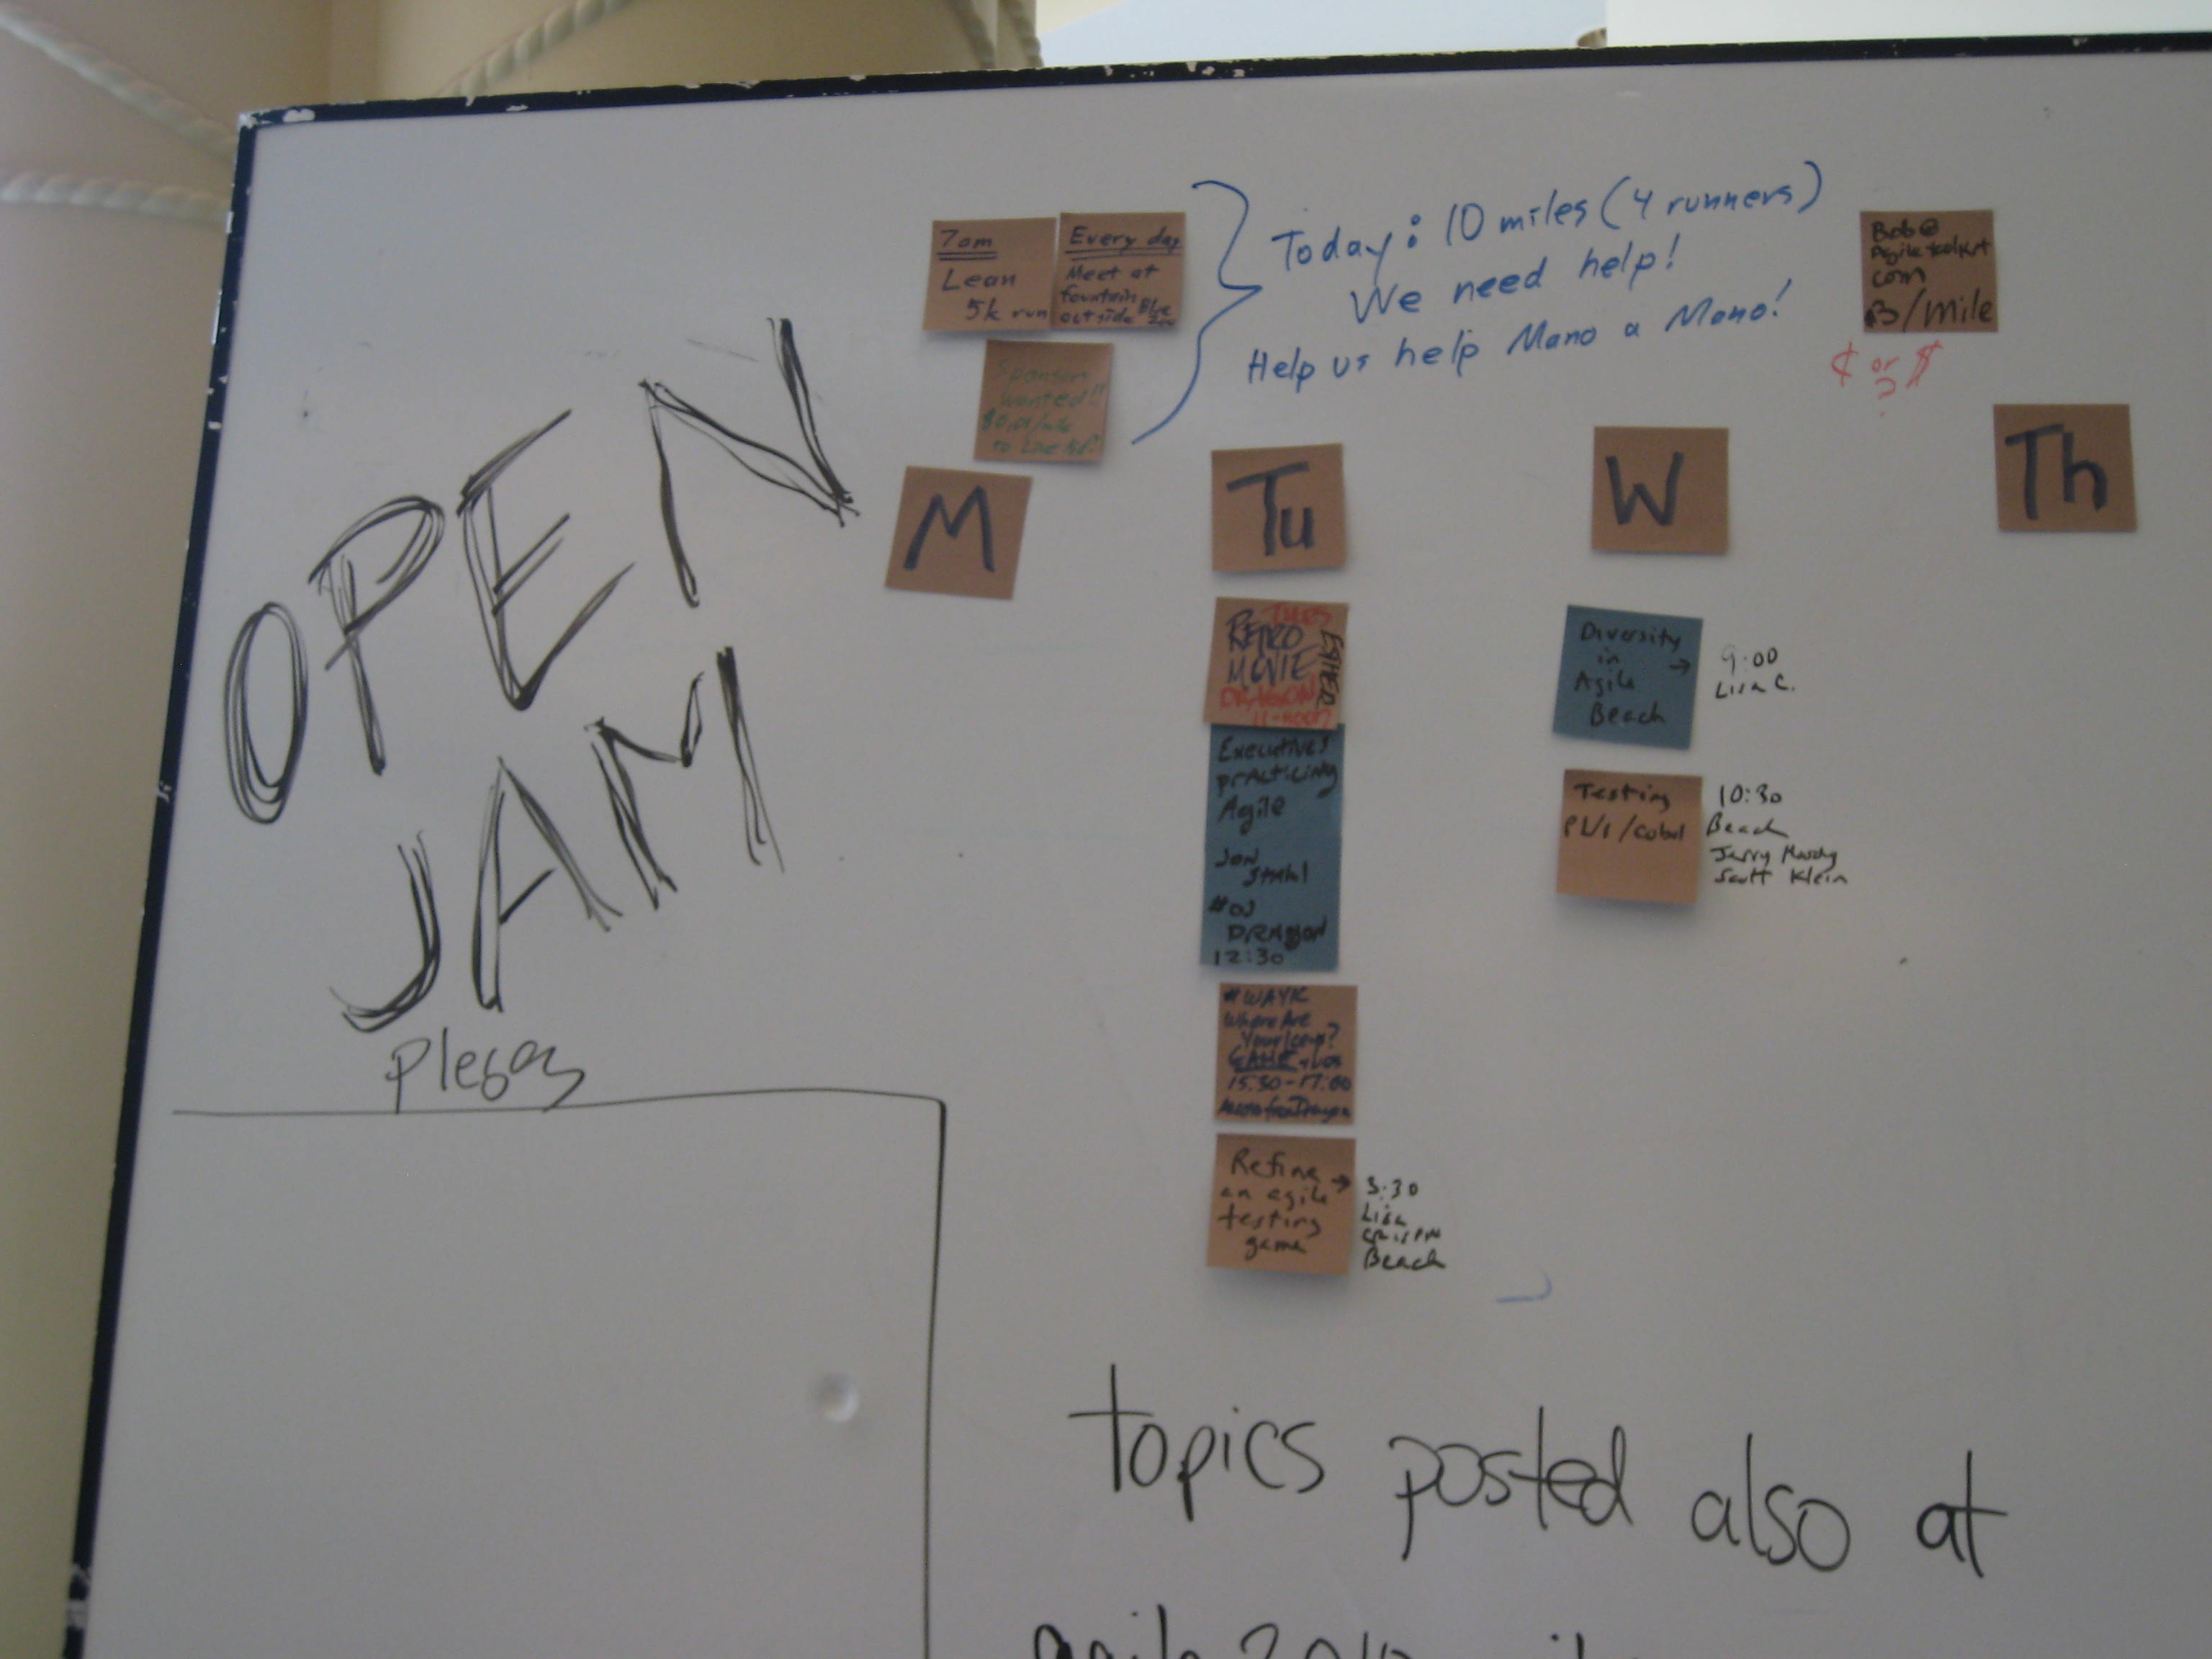 OPEN
JAM
7am
Lean
5k run
Every day
Meet at
fountain
outside
Sponsors
wanted!!
$0.01/mile
to
Today: 10 miles (4 runners)
We need help!
Help us help Mano a Mano!
Bob@
Agile toolkit
com
/Mile
¢ or $
?
M
Tu
W
Th
TUES
RETRO
MOVIE
ESTHER
DRAGON
11-noon
Executives
practicing
Agile
Jon
Stahl
#OJ
DRAGON
12:30
#WAYK
Where Are
Your Keys?
GAME
15:30-17:00
Across from Dragon
Refine →
an agile
testing
game
3:30
Lisa
CRISPIN
Beach
Diversity
in →
Agile
Beach
9:00
Lisa C.
Testing
PL/1/Cobol
10:30
Beach
Jerry
Scott Klein
topics posted also at